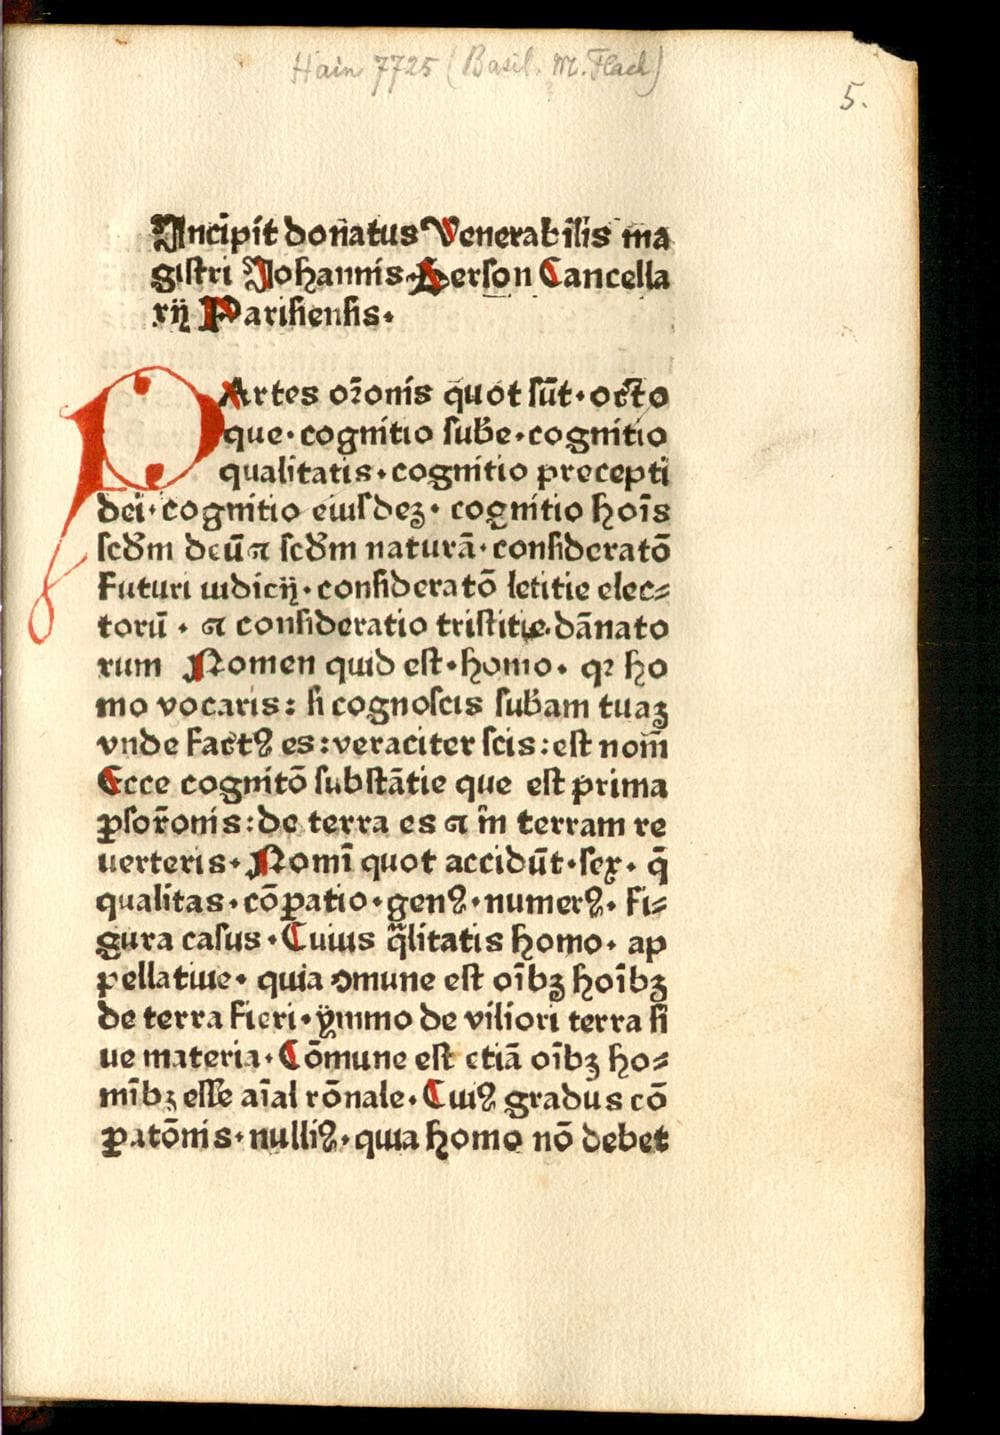 Hain 7725 (Basil. M. Flach)
?
5.
Incip̄it donatus Venerabilis ma
gistri Johannis Gerson Cancella
rij Parisiensis.
PArtes or̄onis quot sūt. octo
que. cognitio sub̄e. cognitio
qualitatis. cognitio precepti
dei. cognitio eiusdeꝫ. cognitio hoīs
scd̄m deū ⁊ scd̄m naturā. consideratō
futuri iudicij. consideratō letitie elec⸗
torū. ⁊ consideratio tristitie. dānato
rum Nomen quid est. homo. qꝛ ho
mo vocaris: si cognoscis sub̄am tuaꝫ
vnde factꝰ es: veraciter scis: est nom̄
Ecce cognitō substātie que est prima
ꝑs or̄onis: de terra es ⁊ in terram re
uerteris. Nomī quot accidūt. sex. q̄
qualitas. cōꝑatio. genꝰ. numerꝰ. fi⸗
gura casus. Cuius q̄litatis homo. ap
pellatiue. quia ꝯmune est oībꝫ hoībꝫ
de terra fieri. ymmo de viliori terra si
ue materia. Cōmune est etiā oībꝫ ho⸗
mībꝫ esse aīal rōnale. Cuiꝰ gradus cō
ꝑatōnis. nulliꝰ. quia homo nō debet